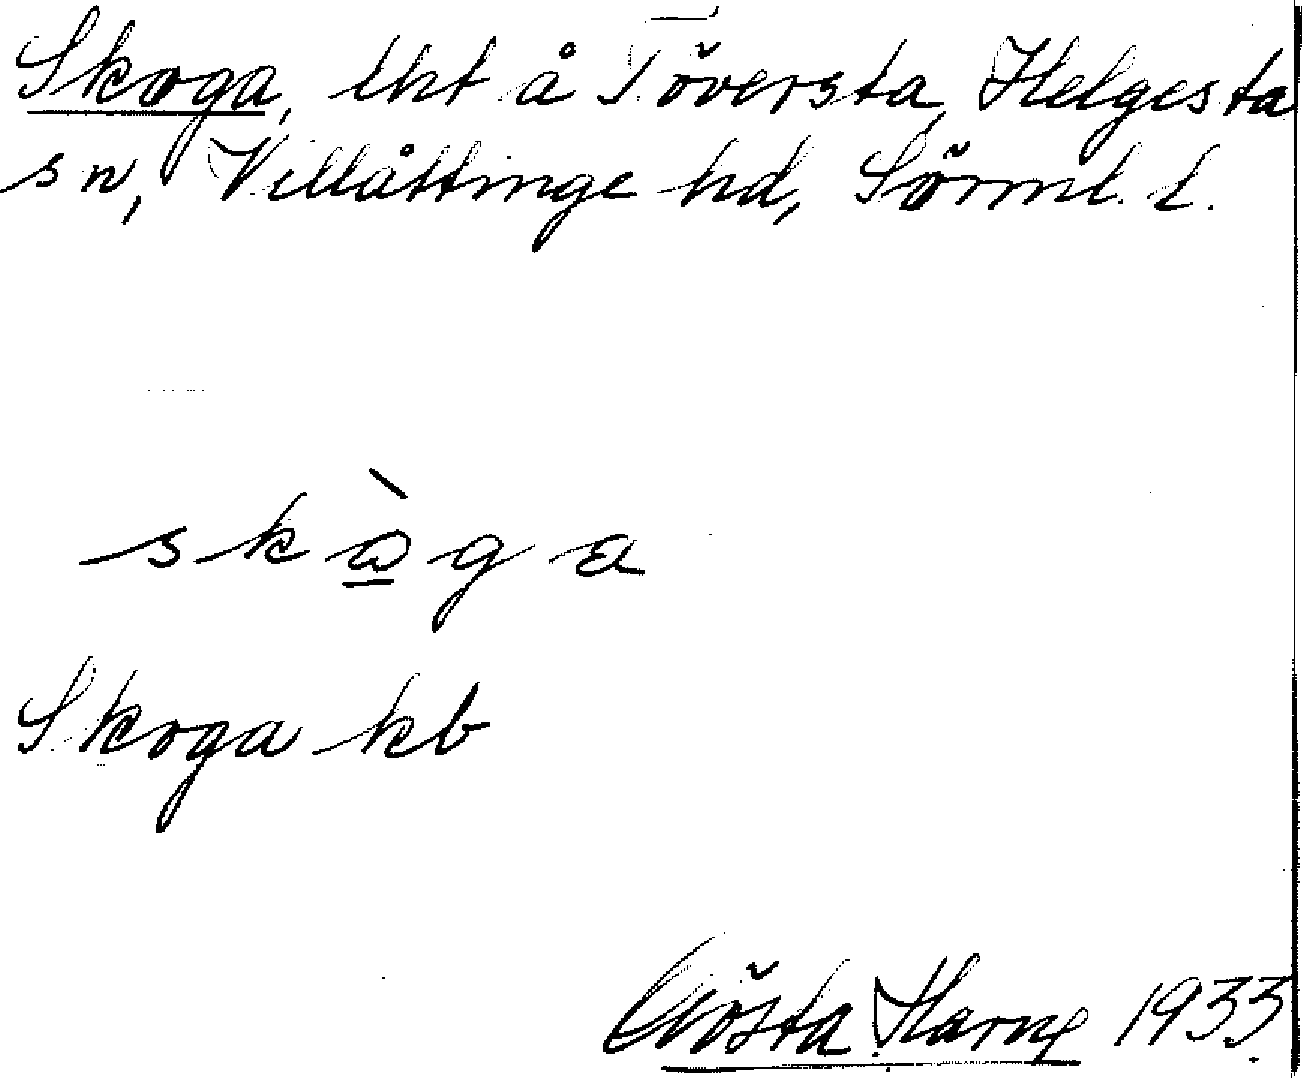 Skoga, lht å Töversta, Helgesta
sn, Villåttinge hd, Sörml. l.
skò̲ga
Skoga kb
Gösta Harne 1933